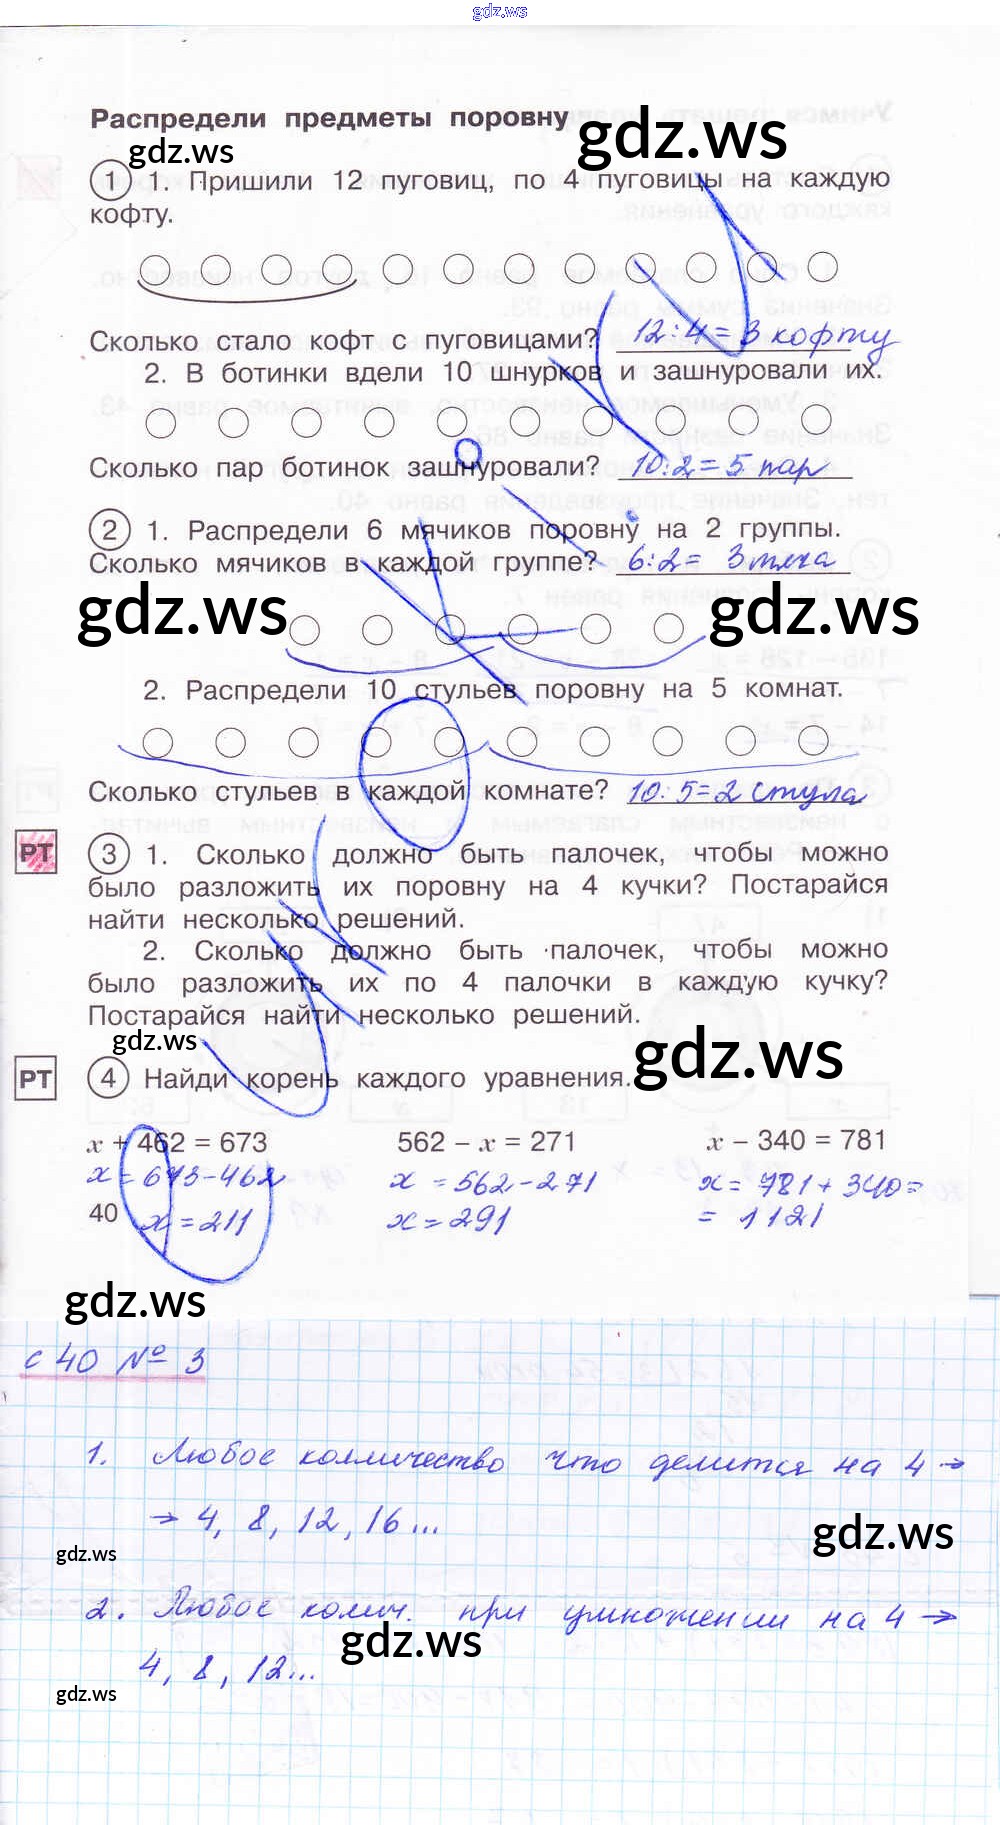 gdz.ws
Распредели предметы поровну
gdz.ws
gdz.ws
1 1. Пришили 12 пуговиц, по 4 пуговицы на каждую
кофту.
Сколько стало кофт с пуговицами? 12:4=3 кофту
2. В ботинки вдели 10 шнурков и зашнуровали их.
Сколько пар ботинок зашнуровали? 10:2=5 пар
2 1. Распредели 6 мячиков поровну на 2 группы.
Сколько мячиков в каждой группе? 6:2= 3 мяча
gdz.ws
gdz.ws
2. Распредели 10 стульев поровну на 5 комнат.
Сколько стульев в каждой комнате? 10:5=2 стула
РТ 3 1. Сколько должно быть палочек, чтобы можно
было разложить их поровну на 4 кучки? Постарайся
найти несколько решений.
2. Сколько должно быть палочек, чтобы можно
было разложить их по 4 палочки в каждую кучку?
Постарайся найти несколько решений.
gdz.ws
gdz.ws
РТ 4 Найди корень каждого уравнения.
x + 462 = 673 562 – x = 271 x – 340 = 781
x = 673-462 x = 562-271 x = 781+340=
40 x = 211 x = 291 = 1121
gdz.ws
с 40 № 3
1. Любое колличество что делится на 4 →
→ 4, 8, 12, 16...
gdz.ws
gdz.ws
2. Любое колич. при умножении на 4 →
gdz.ws
4, 8, 12...
gdz.ws